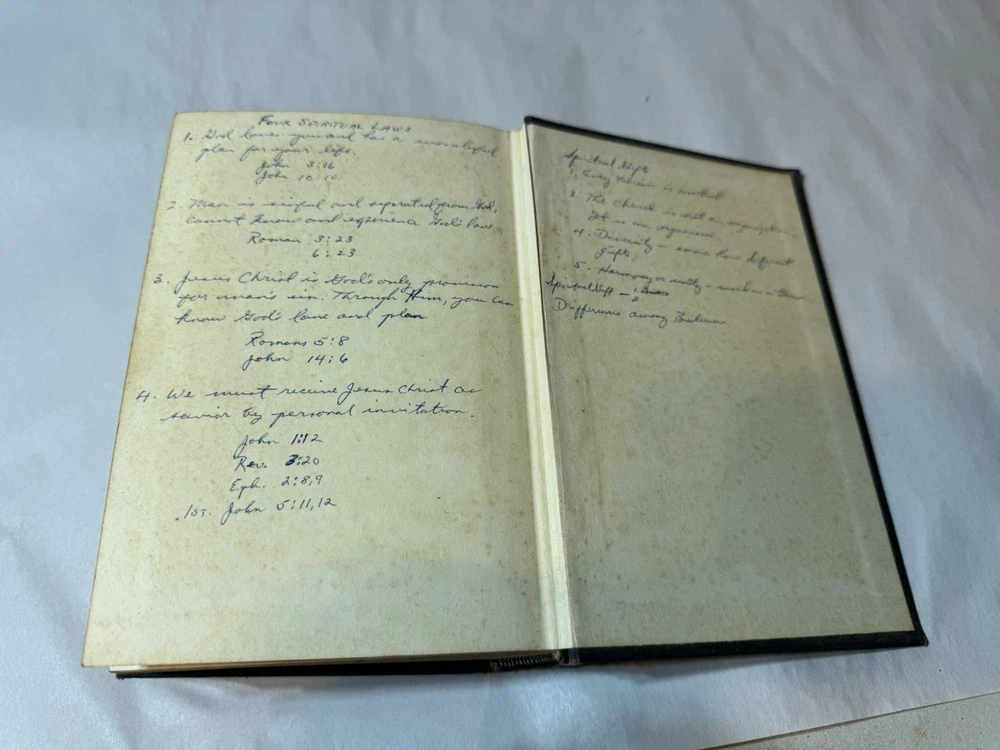 FOUR SPIRITUAL LAWS
1. God loves you and has a wonderful
plan for your life.
John 3:16
John 10:10
2. Man is sinful and separated from God,
cannot know and experience God's love.
Roman 3:23
6:23
3. Jesus Christ is God's only provision
for man's sin. Through Him, you can
know God's love and plan
Romans 5:8
John 14:6
4. We must receive Jesus Christ as
savior by personal invitation.
John 1:12
Rev. 3:20
Eph. 2:8,9
1st. John 5:11,12
Spiritual Gifts
1. Every is
2. The Church is not an
It is an organism
4. Diversity - some have different
gifts
5. Harmony or unity - such as a
Spiritual Gift - 1.
2
Differences among